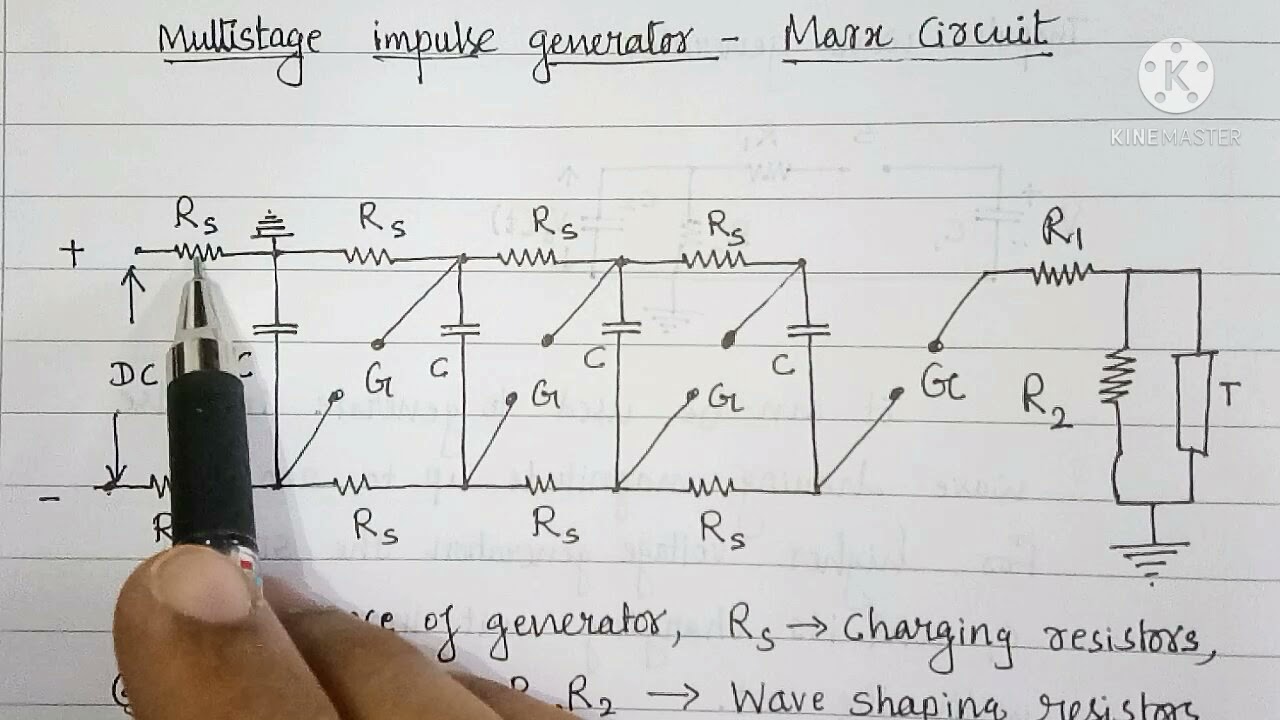 Multistage impulse generator - Marx Circuit
K
KINEMASTER
Rs Rs Rs Rs R1
+
DC C G C G C G C G R2 T
-
R Rs Rs Rs
of generator, Rs → Charging resistors,
R2 → Wave shaping resistors